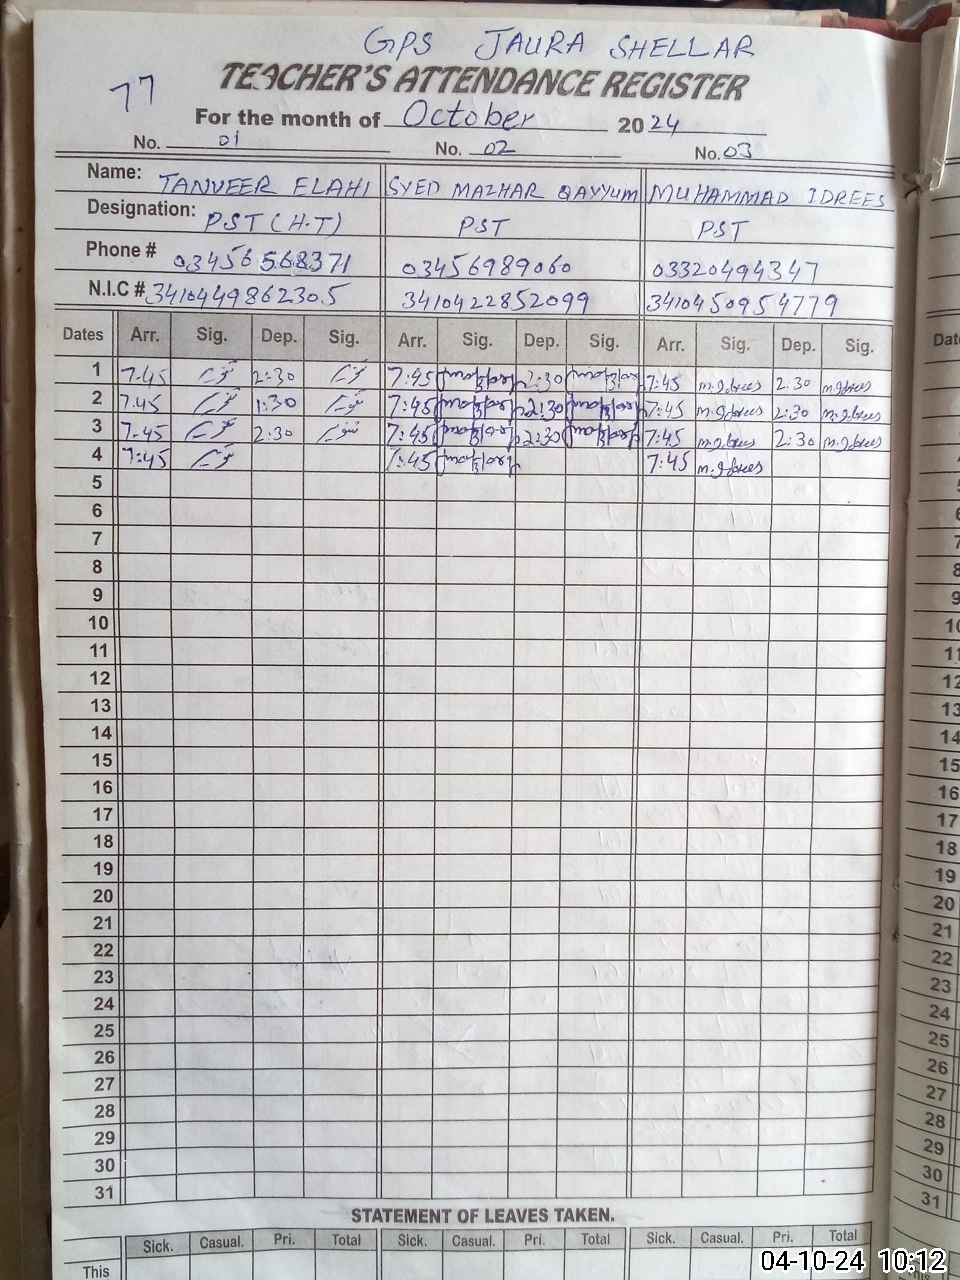 GPS JAURA SHELLAR
77
TEACHER'S ATTENDANCE REGISTER
For the month of October 2024
No. 01 No. 02 No. 03
Name: TANVEER ELAHI SYED MAZHAR QAYYUM MUHAMMAD IDREES
Designation: PST (H.T) PST PST
Phone # 03456568371 03456989060 03320494347
N.I.C # 3410449862305 3410422852099 3410450954779
Dates Arr. Sig. Dep. Sig. Arr. Sig. Dep. Sig. Arr. Sig. Dep. Sig.
1 7-45 2:30 7:45 2:30 7:45 m.Idrees 2:30 m.Idrees
2 7.45 1:30 7:45 2:30 7:45 m.Idrees 2:30 m.Idrees
3 7-45 2:30 7:45 2:30 7:45 m.Idrees 2:30 m.Idrees
4 7:45 7:45 7:45 m.Idrees
5
6
7
8
9
10
11
12
13
14
15
16
17
18
19
20
21
22
23
24
25
26
27
28
29
30
31
STATEMENT OF LEAVES TAKEN.
Sick. Casual. Pri. Total Sick. Casual. Pri. Total Sick. Casual. Pri. Total
This
04-10-24 10:12
10
11
12
13
14
15
16
17
18
19
20
21
22
23
24
25
26
27
28
29
30
31